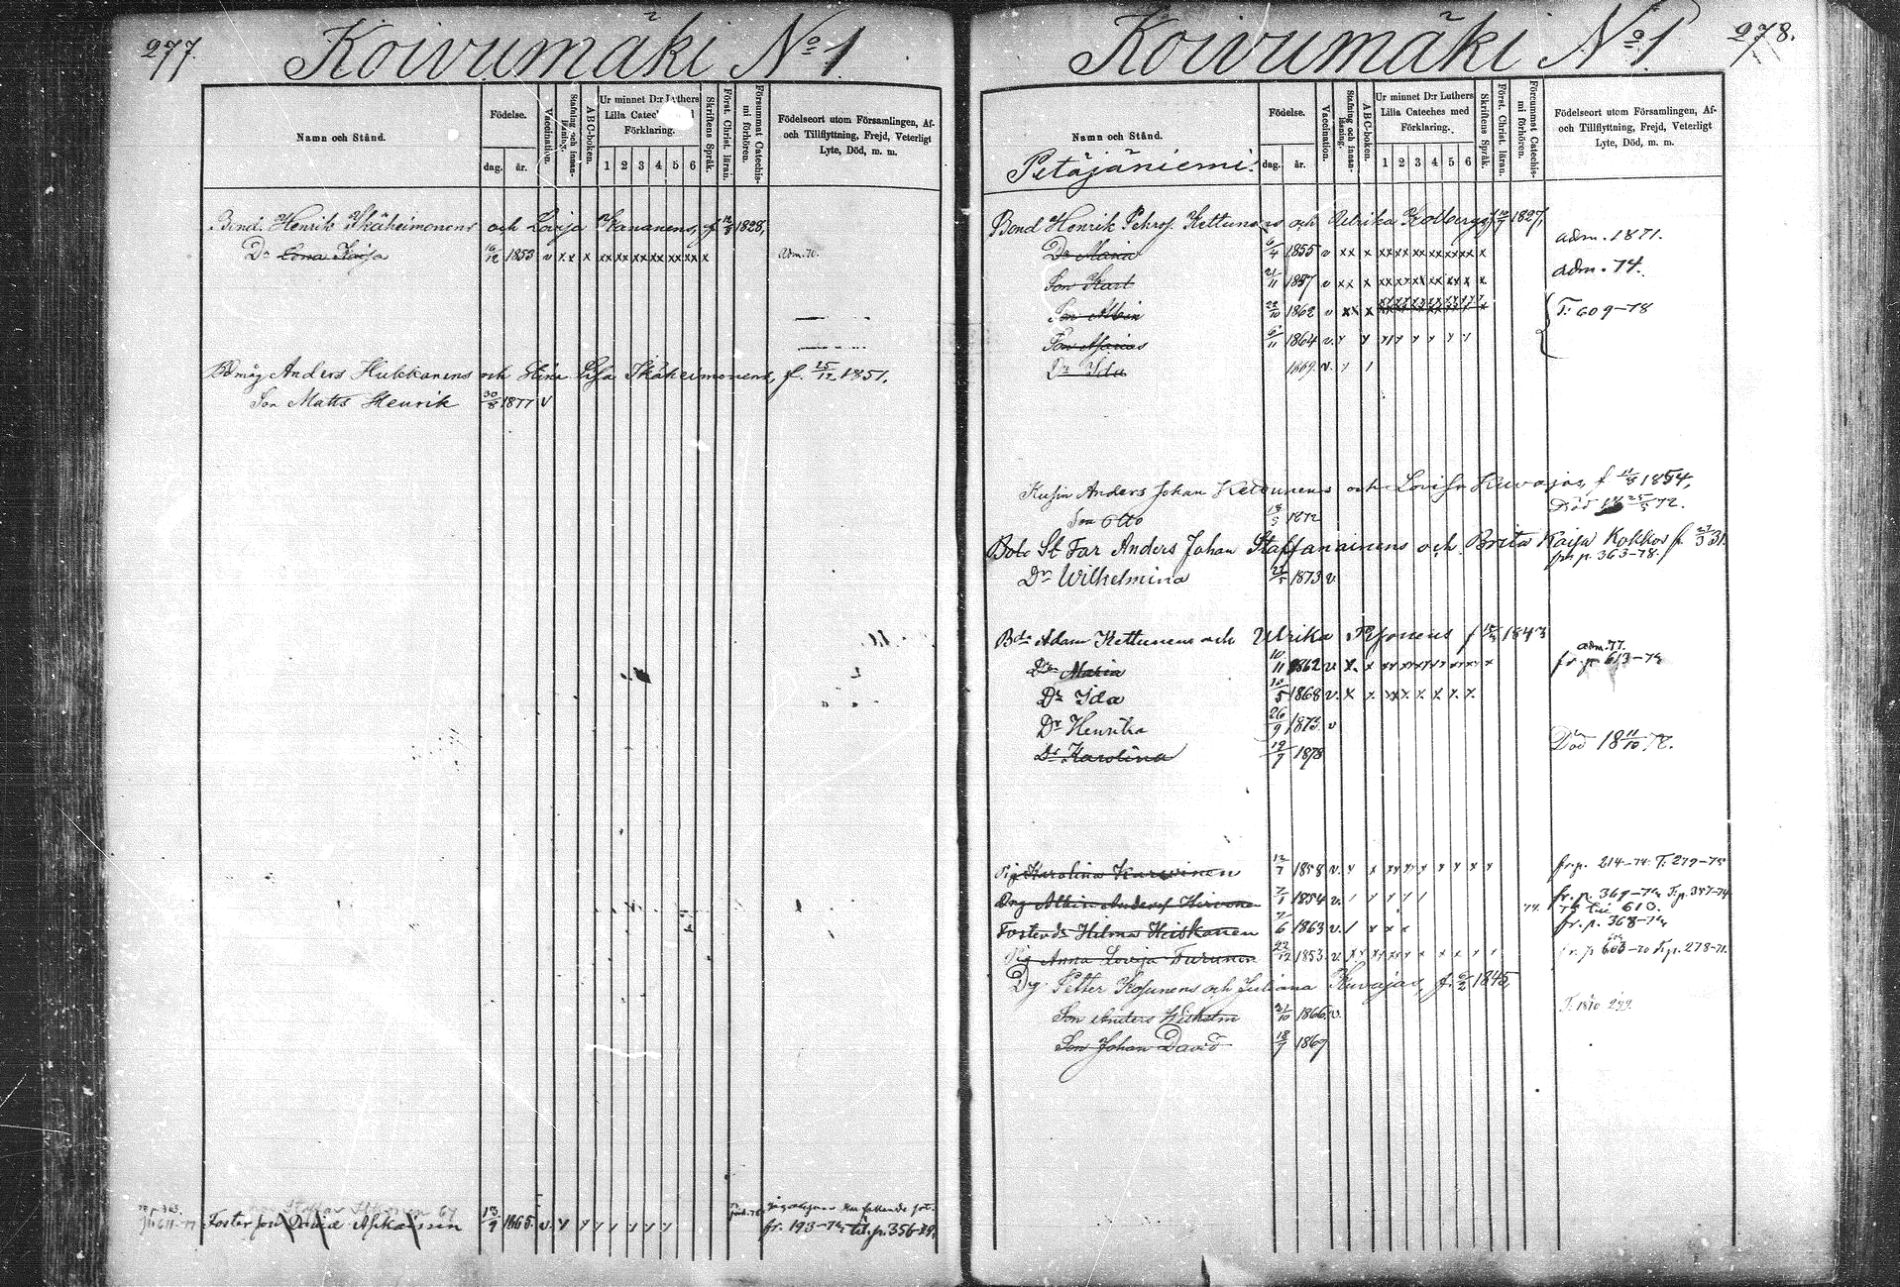 277.
Koivumäki No 1
Namn och Stånd.
Födelse.
dag. år.
Vaccination.
Stafning och innan-läsning.
ABC-boken.
Ur minnet D:r Luthers
Lilla Catec
Förklaring.
1 2 3 4 5 6
Skriftens Språk.
Först. Christ. läran.
Försummat Catechis-mi förhören.
Födelseort utom Församlingen, Af-
och Tillflyttning, Frejd, Veterligt
Lyte, Död, m. m.
Bond. Henrik Ikäheimonens och Lovisa 1828,
Dr 16/12 1853 v x x x xx xx xx xx xx xx x adm. 70.
Anders Hukkanens och Stina Lisa Ikäheimonens, f. 25/12 1851.
Son Matts Henrik 30/8 1877 v
Foster son David 13/9 1865. v.
fr. 193-74 till. p. 356-79.
278.
Koivumäki No 1
Namn och Stånd.
Födelse.
dag. år.
Vaccination.
Stafning och innan-läsning.
ABC-boken.
Ur minnet D:r Luthers
Lilla Cateches med
Förklaring.
1 2 3 4 5 6
Skriftens Språk.
Först. Christ. läran.
Försummat Catechis-mi förhören.
Födelseort utom Församlingen, Af-
och Tillflyttning, Frejd, Veterligt
Lyte, Död, m. m.
Petäjäniemi.
Bond Henrik Pehrss. Kettunens och Ulrika Kolbergs f 1827,
Dr Maria 6/4 1855 v xx x xx xx xx xx xx xx x adm. 1871.
Son Karl 21/11 1857 v xx x adm. 74.
Son Albin 22/10 1862 v xx x T: 609-78
Son 6/11 1864 v.
Dr Ida 1869. v.
Anders Johan Kettunens och Lovisa Kuvajas, f 11/8 1854,
Son Otto 18/5 1872 Död 25/5 72.
Anders Johan Staffanainens och Brita Kaisa Kokkos f. 27/3 31.
fr. p. 363-78.
Dr Wilhelmina 22/5 1873 v.
Bdr Adam Kettunens och Ulrika f 1843
Dr Maria 10/11 1862 v. x. adm. 77. fr. p. 613-74
Dr Ida 10/5 1868 v. x
Dr Henrika 26/9 1873. v
Dr Karolina 19/7 1878 Död 18 11/10 78.
Pig. Karolina 12/7 1858 v. fr. p. 214-74. T: 279-75
Drg Albin Anderss. Hirvonen 7/1 1854 v. 74. fr. p. 369-74 T. p. 357-74
610.
Fosterdr Hilma Heiskanen 6 1863 v. fr. p. 368-74
Pig Anna Lovisa Turunen 22/12 1853. v. 603-70 T. p. 278-71.
Dg. Petter Kosunens och Juliana Kuvajas, f. 6/2 1845,
Son Anders Wilhelm 21/10 1866. v. T: 1870 299.
Son Johan David 18/7 1869